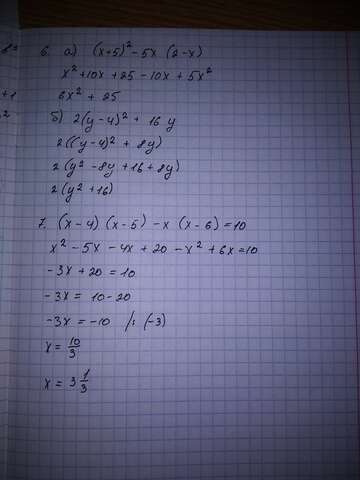 6. а) (x+5)² - 5x (2-x)
x² + 10x + 25 - 10x + 5x²
6x² + 25
б) 2(y-4)² + 16 y
2((y-4)² + 8y)
2(y² - 8y + 16 + 8y)
2(y² + 16)
7. (x-4) (x-5) - x (x-6) = 10
x² - 5x - 4x + 20 - x² + 6x = 10
-3x + 20 = 10
-3x = 10 - 20
-3x = -10 /: (-3)
x = 10/3
x = 3 1/3